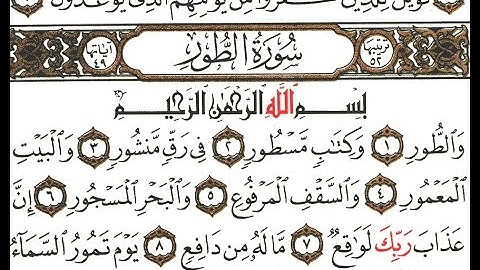 فَوَيْلٌ لِّلَّذِينَ كَفَرُوا۟ مِن يَوْمِهِمُ ٱلَّذِى يُوعَدُونَ
ترتيبها ٥٢ سُورَةُ الطُّورِ آياتها ٤٩
بِسْمِ ٱللَّهِ ٱلرَّحْمَٰنِ ٱلرَّحِيمِ
وَٱلطُّورِ ١ وَكِتَٰبٍ مَّسْطُورٍ ٢ فِى رَقٍّ مَّنشُورٍ ٣ وَٱلْبَيْتِ
ٱلْمَعْمُورِ ٤ وَٱلسَّقْفِ ٱلْمَرْفُوعِ ٥ وَٱلْبَحْرِ ٱلْمَسْجُورِ ٦ إِنَّ
عَذَابَ رَبِّكَ لَوَٰقِعٌ ٧ مَّا لَهُۥ مِن دَافِعٍ ٨ يَوْمَ تَمُورُ ٱلسَّمَآءُ